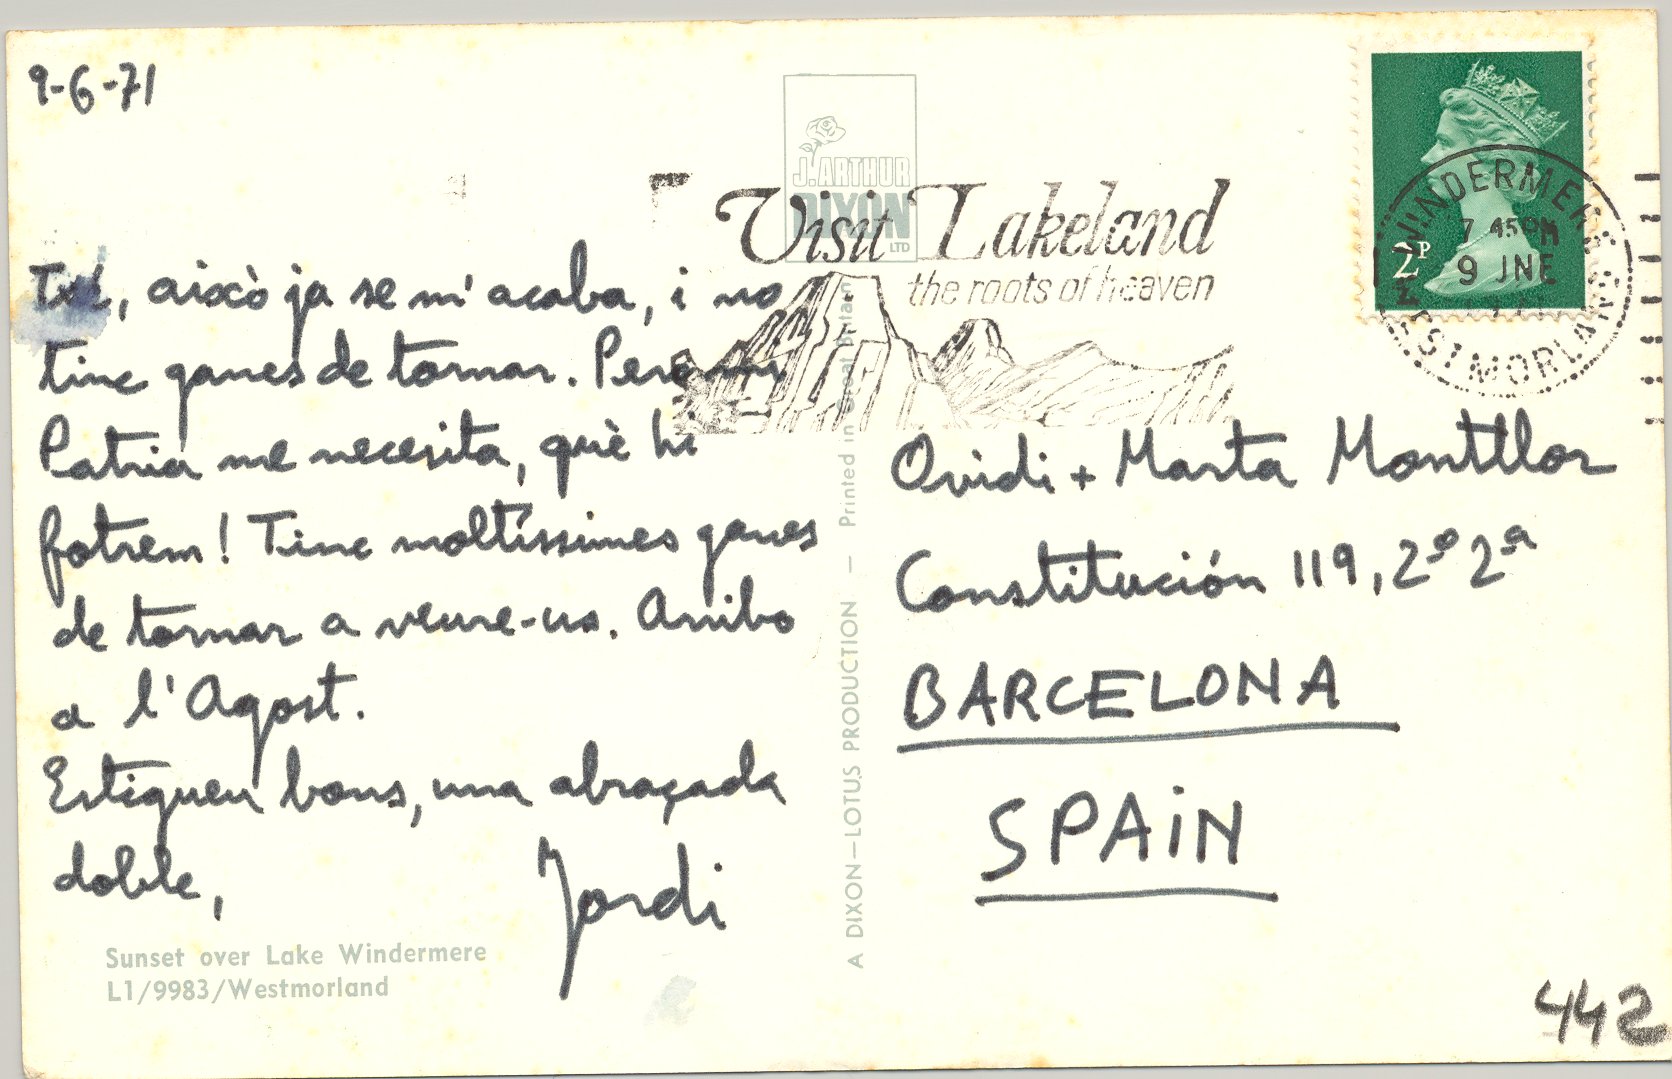 9-6-71
J. ARTHUR
DIXON
LTD
Visit Lakeland
the roots of heaven
WINDERMERE
7 45 PM
9 JNE
WESTMORLAND
2P
Txi, això ja se m'acaba, i no
tinc ganes de tornar. Però mi
Patria me necesita, què hi
fotrem! Tinc moltíssimes ganes
de tornar a veure-us. Arribo
a l'Agost.
Estigueu bons, una abraçada
doble,
Jordi
Sunset over Lake Windermere
L1/9983/Westmorland
A DIXON—LOTUS PRODUCTION — Printed in Great Britain
Ovidi + Marta Montllor
Constitución 119, 2º 2ª
BARCELONA
SPAiN
442